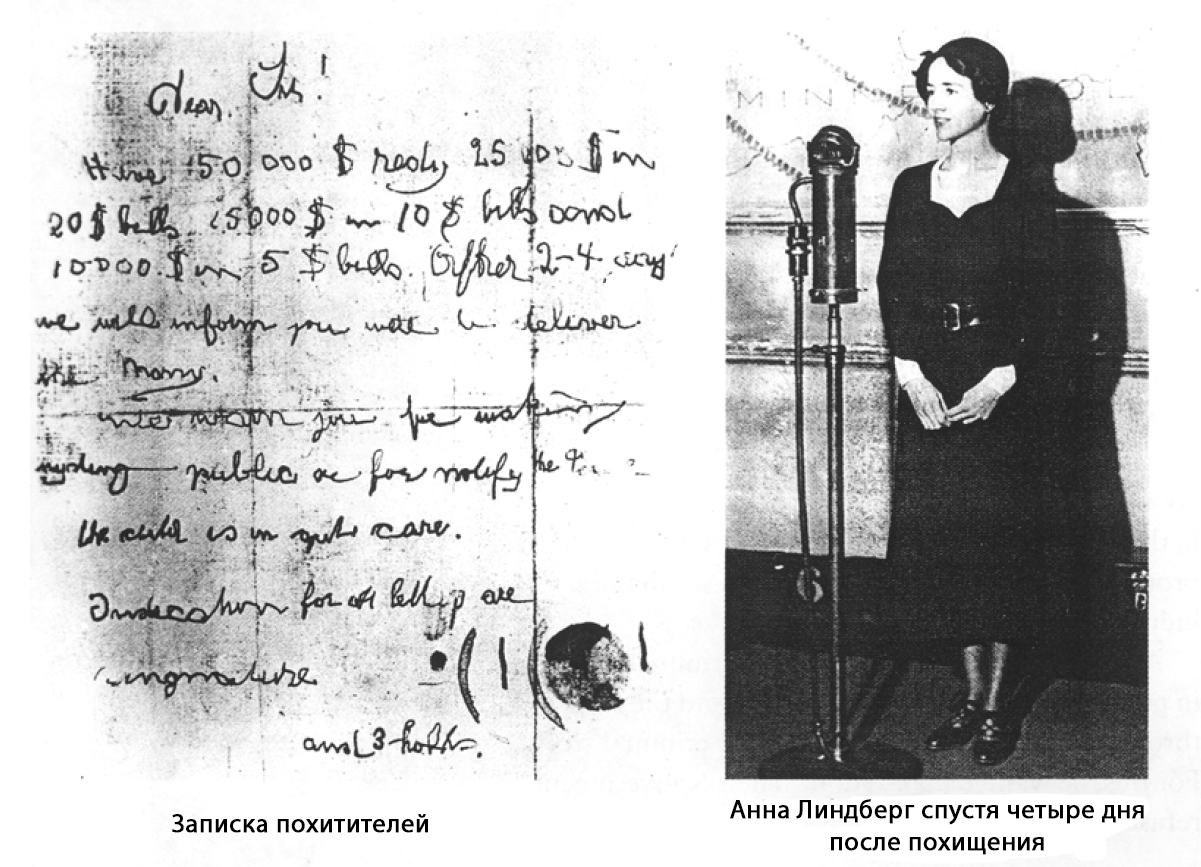 Dear Sir!
Have 50 000 $ redy 25 000 $ in
20 $ bills 15000 $ in 10 $ bills and
10000 $ in 5 $ bills. After 2-4 days
we will inform you were to deliver
the Mony.
We warn you for making
anyding public or for notify the
the child is in gut care.
Indication for all letters are
singnature
and 3 holds.
MINNE
OL
Записка похитителей
Анна Линдберг спустя четыре дня
после похищения